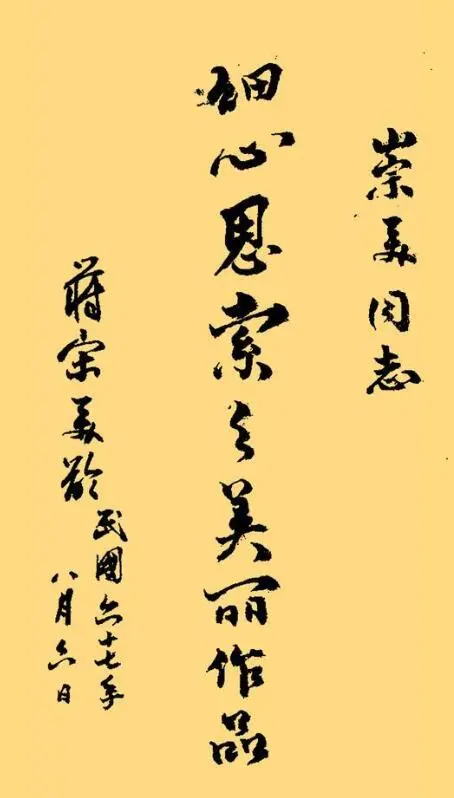 崇美同志
細心思索之美丽作品
蔣宋美齡
民國六十七年
八月六日